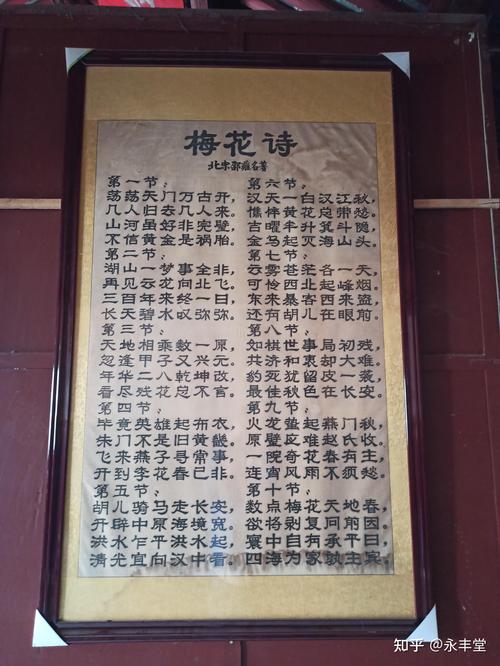 梅花诗
北宋邵雍名著
第一节：
荡荡天门万古开，
几人归去几人来。
山河虽好非完璧，
不信黄金是祸胎。
第二节：
湖山一梦事全非，
再见云龙向北飞。
三百年来终一日，
长天碧水叹弥弥。
第三节：
天地相乘数一原，
忽逢甲子又兴元。
年华二八乾坤改，
看尽残花总不言。
第四节：
毕竟英雄起布衣，
朱门不是旧黄畿。
飞来燕子寻常事，
开到李花春已非。
第五节：
胡儿骑马走长安，
开辟中原海境宽。
洪水乍平洪水起，
清光宜向汉中看。
第六节：
汉天一白汉江秋，
憔悴黄花总带愁。
吉曜半升箕斗隐，
金乌起灭海山头。
第七节：
云雾苍茫各一天，
可怜西北起烽烟。
东来暴客西来盗，
还有胡儿在眼前。
第八节：
如棋世事局初残，
共济和衷却大难。
豹死犹留皮一袭，
最佳秋色在长安。
第九节：
火龙蛰起燕门秋，
原璧应难赵氏收。
一院奇花春有主，
连宵风雨不须愁。
第十节：
数点梅花天地春，
欲将剥复问前因。
寰中自有承平日，
四海为家孰主宾
知乎 @永丰堂